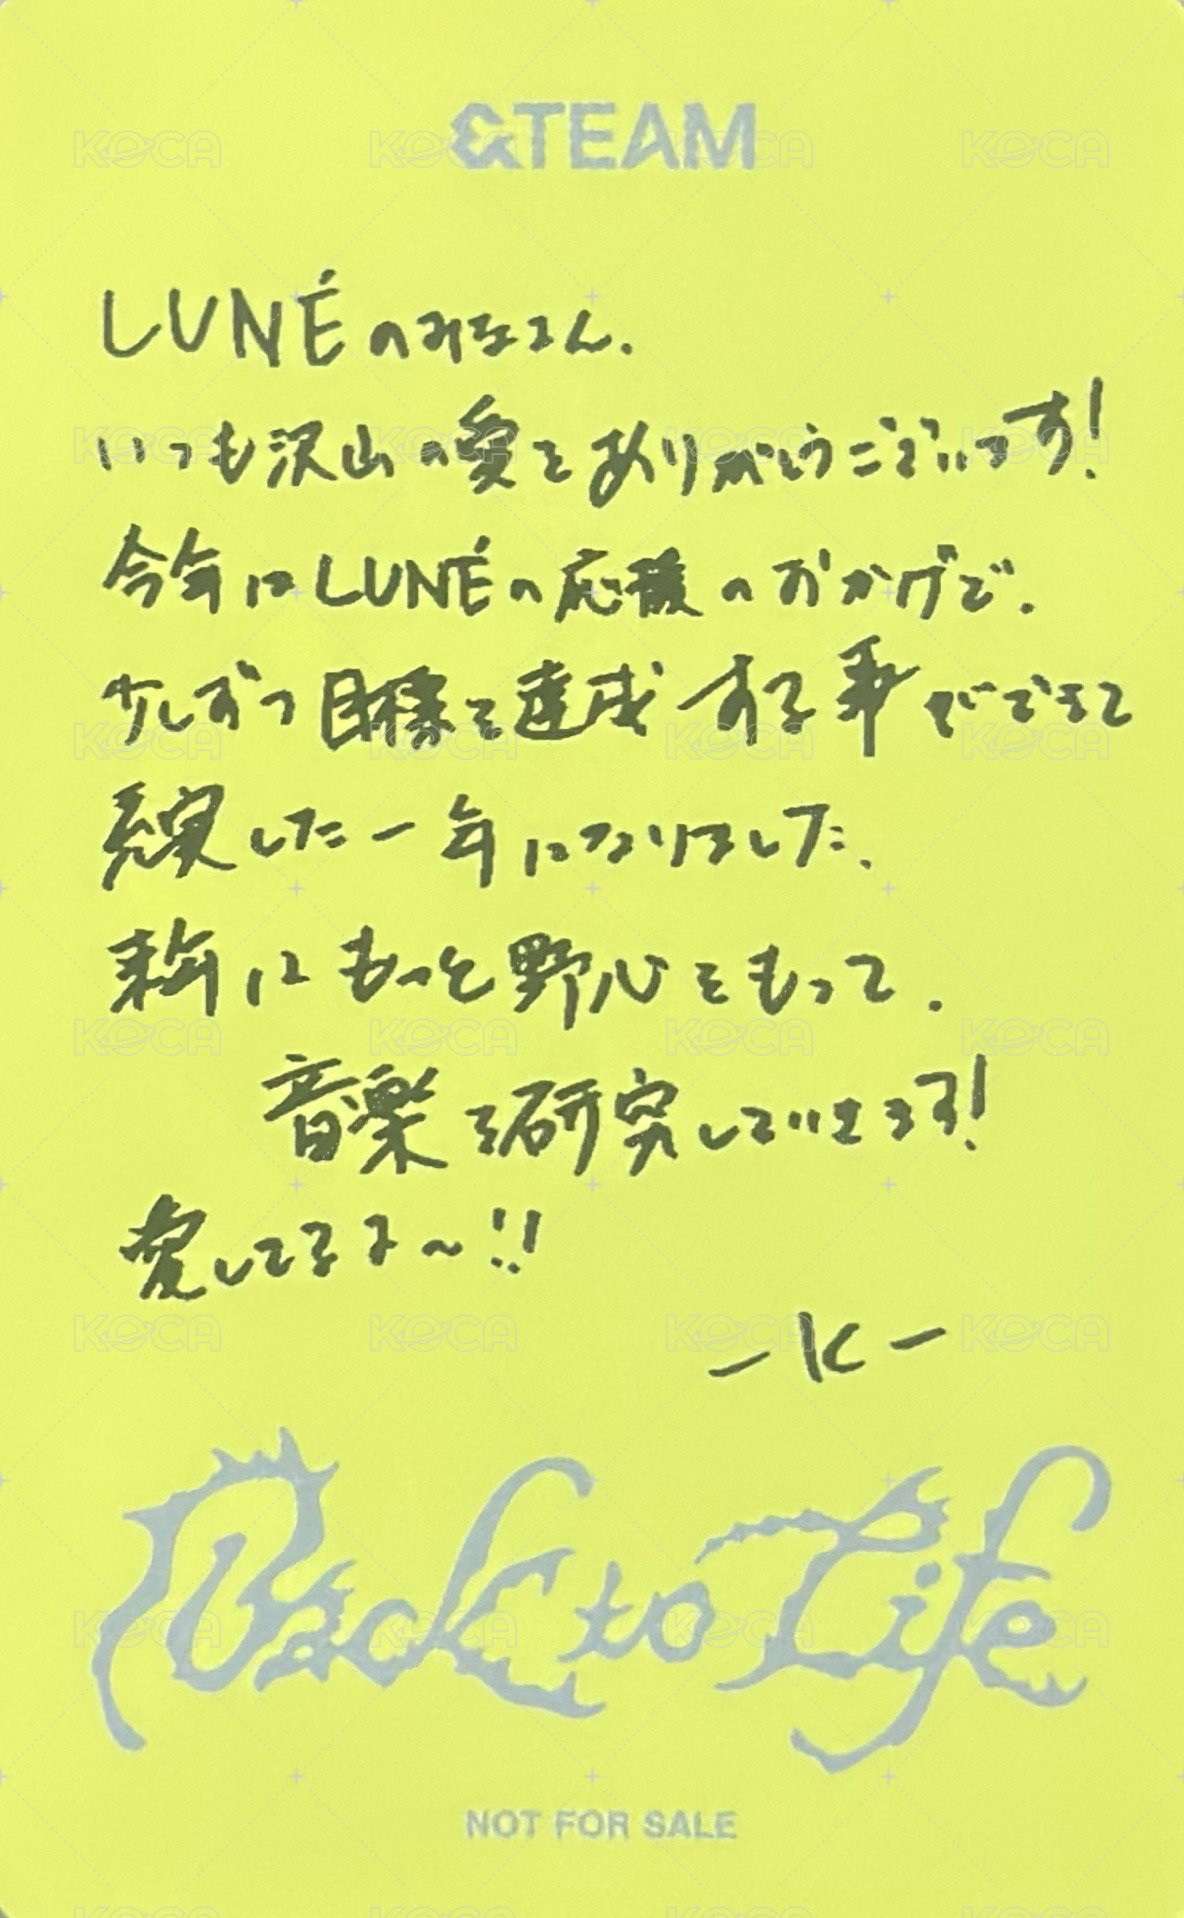 &TEAM
LUNÉのみなさん.
いつも沢山の愛をありがとうございます!
今年はLUNÉの応援のおかげで.
少しずつ目標を達成する事ができて
充実した一年になりました.
来年はもっと野心をもって.
音楽を研究していきます!
愛してるよ〜!!
-K-
Back to Life
NOT FOR SALE
KOCA